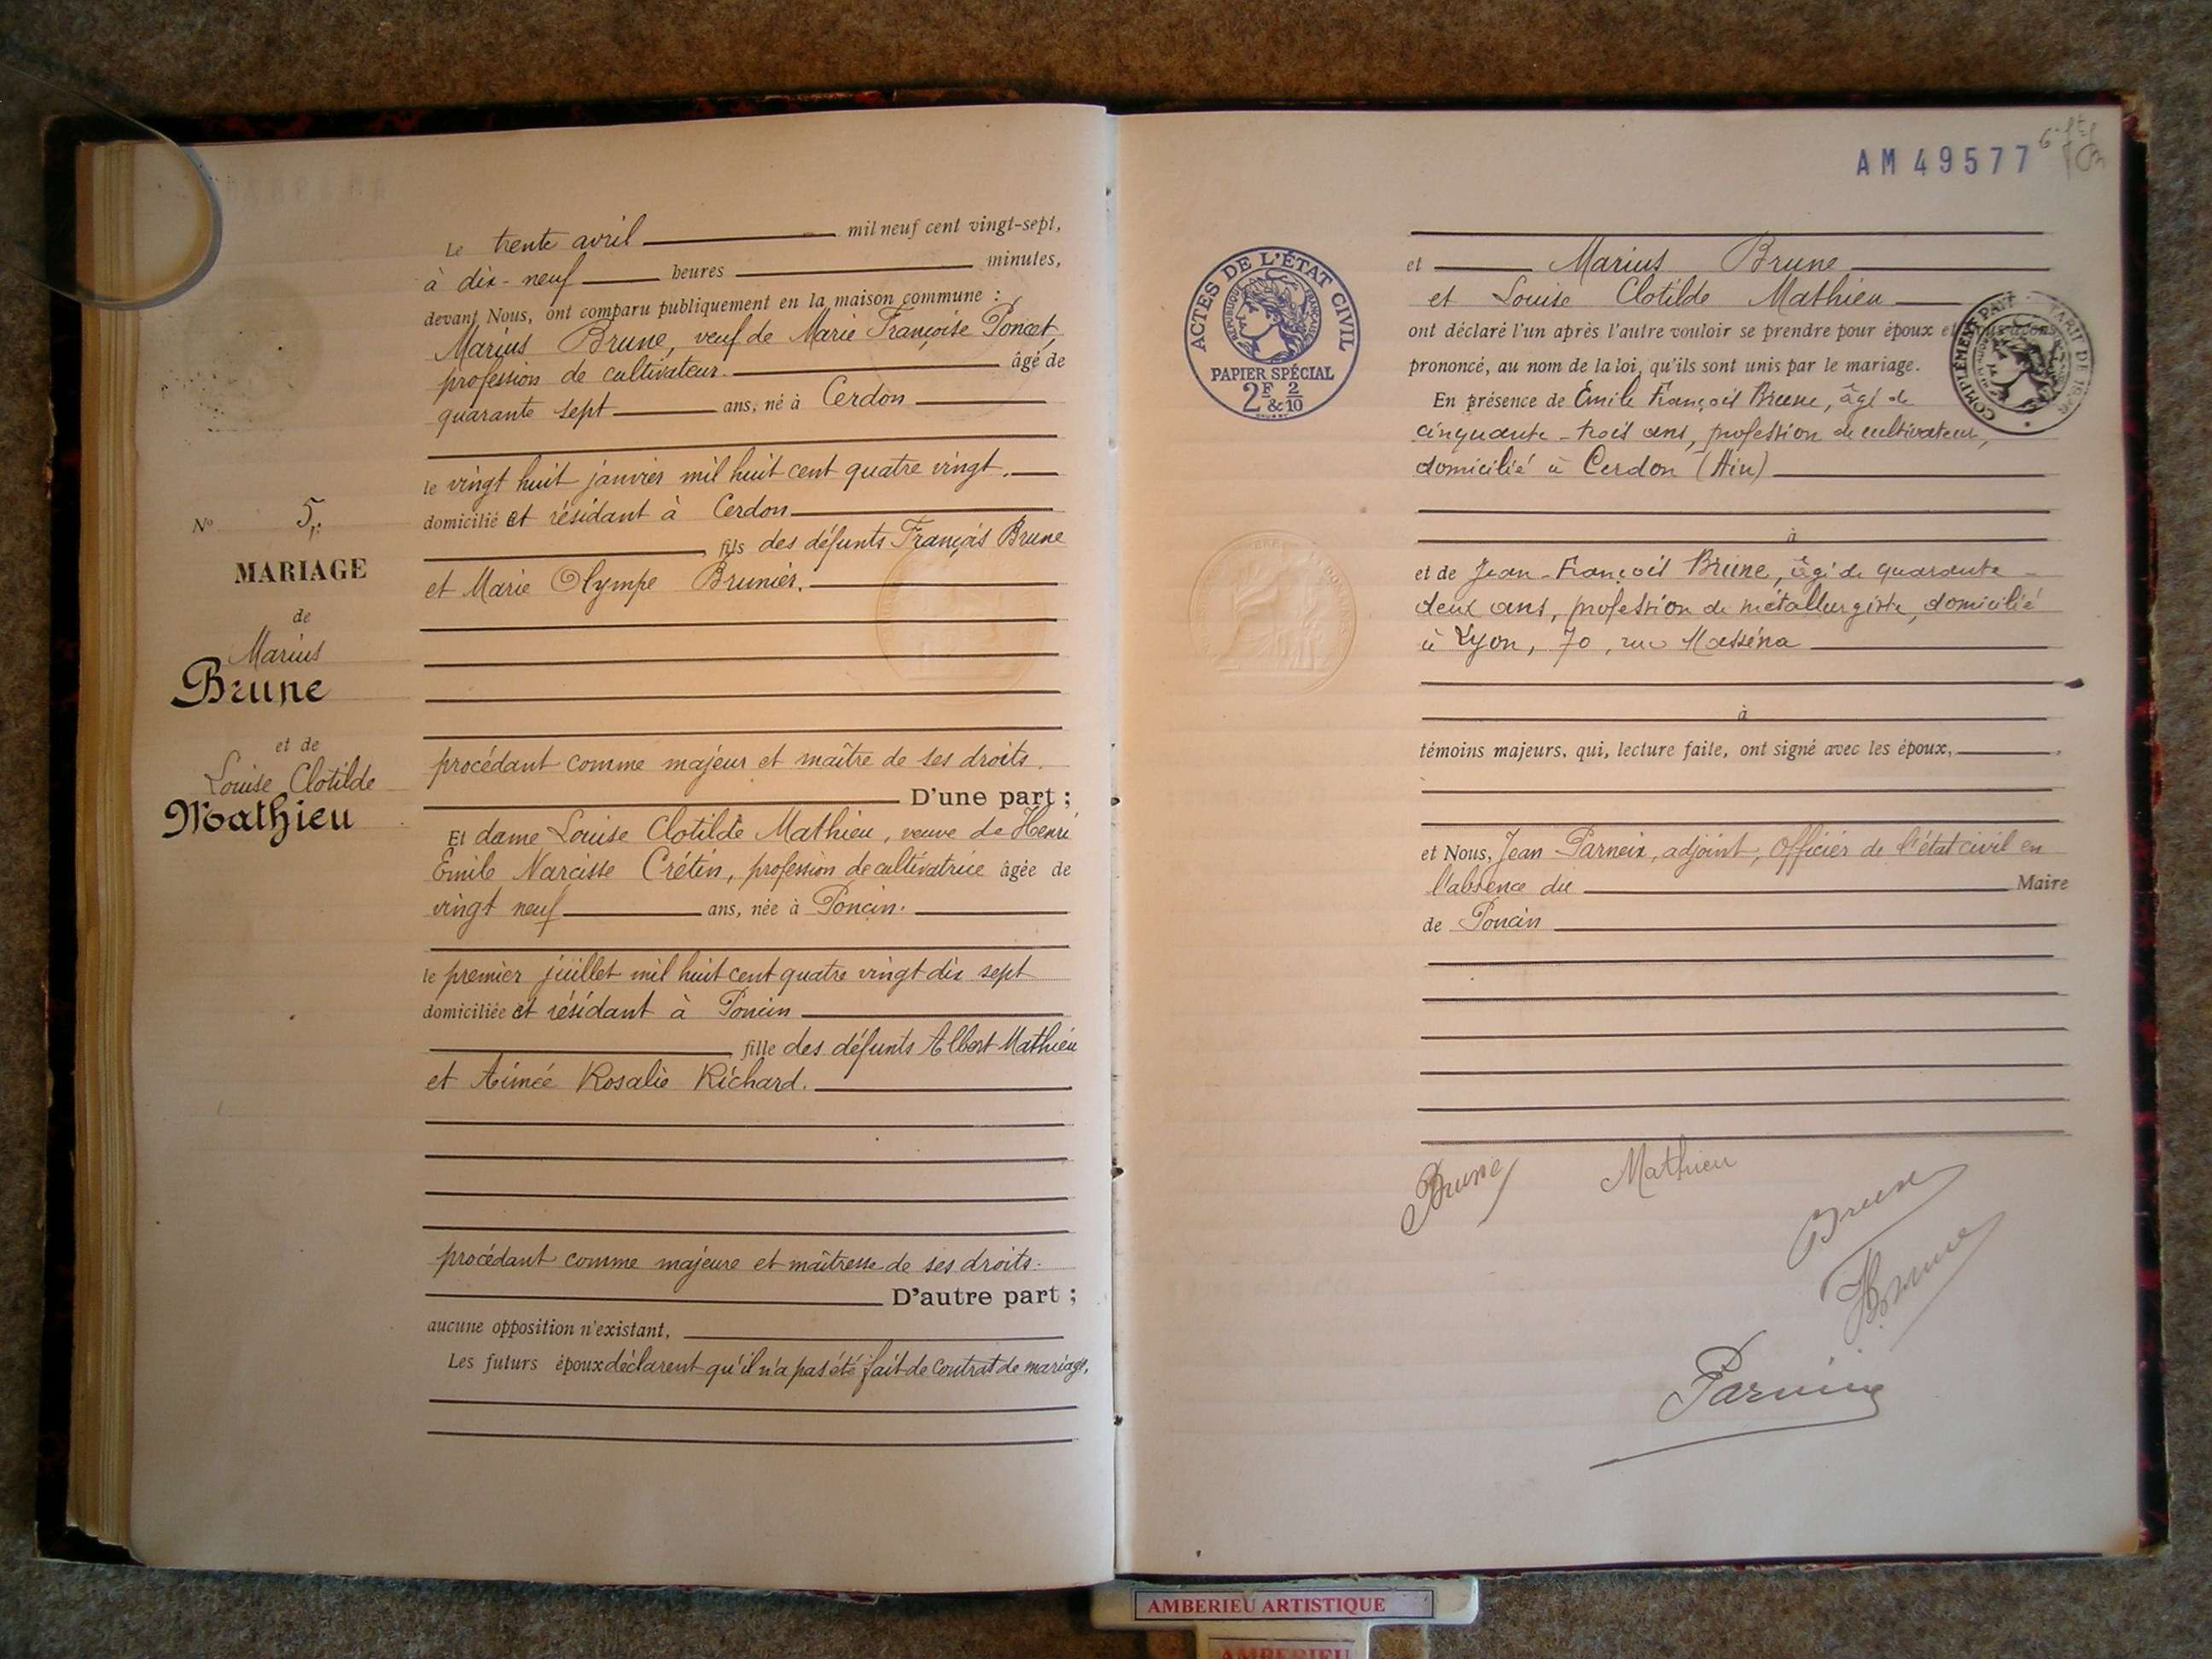 Le trente avril mil neuf cent vingt-sept,
à dix-neuf heures minutes,
devant Nous, ont comparu publiquement en la maison commune :
Marius Brune, veuf de Marie Françoise Poncet,
profession de cultivateur. âgé de
quarante sept ans, né à Cerdon
le vingt huit janvier mil huit cent quatre vingt.
domicilié et résidant à Cerdon
fils des défunts François Brune
et Marie Olympe Brunier.
procédant comme majeur et maître de ses droits.
D'une part ;
Et dame Louise Clotilde Mathieu, veuve de Henri
Emile Narcisse Crétin, profession de cultivatrice âgée de
vingt neuf ans, née à Poncin.
le premier juillet mil huit cent quatre vingt dix sept
domiciliée et résidant à Poncin
fille des défunts Albert Mathieu
et Aimée Rosalie Richard.
procédant comme majeure et maîtresse de ses droits.
D'autre part ;
aucune opposition n'existant,
Les futurs époux déclarent qu'il n'a pas été fait de contrat de mariage.
N° 5.
MARIAGE
de
Marius
Brune
et de
Louise Clotilde
Mathieu
AM 49577
ACTES DE L'ÉTAT CIVIL
RÉPUBLIQUE FRANÇAISE
PAPIER SPÉCIAL
2F & 2/10
COMPLÉMENT PAYÉ TARIF DE
et Marius Brune
et Louise Clotilde Mathieu
ont déclaré l'un après l'autre vouloir se prendre pour époux et nous avons
prononcé, au nom de la loi, qu'ils sont unis par le mariage.
En présence de Emile François Brune, âgé de
cinquante-trois ans, profession de cultivateur,
domicilié à Cerdon (Ain)
à
et de Jean-François Brune, âgé de quarante-
deux ans, profession de métallurgiste, domicilié
à Lyon, 70, rue Masséna
à
témoins majeurs, qui, lecture faite, ont signé avec les époux,
et Nous, Jean Parneix, adjoint, Officier de l'état civil en
l'absence du Maire
de Poncin
Brune
Mathieu
Brune
Brune
Parneix
AMBERIEU ARTISTIQUE
AMBERIEU